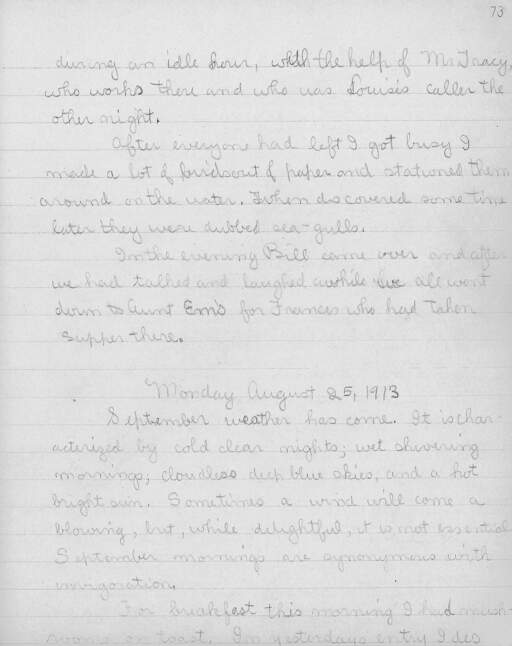 73
during an idle hour, with the help of Mr. Tracy,
who works there and who was Louise's caller the
other night.
After everyone had left I got busy I
made a lot of birds out of paper and stationed them
around on the water. When discovered some time
later they were dubbed sea-gulls.
In the evening Bill came over and after
we had talked and laughed awhile we all went
down to Aunt Em's for Frances who had taken
supper there.
Monday August 25, 1913
September weather has come. It is char-
acterized by cold clear nights; wet shivering
mornings; cloudless deep blue skies, and a hot
bright sun. Sometimes a wind will come a
blowing, but, while delightful, it is not essential
September mornings are synonymous with
invigoration.
For breakfast this morning I had mush-
rooms on toast. In yesterdays entry I des